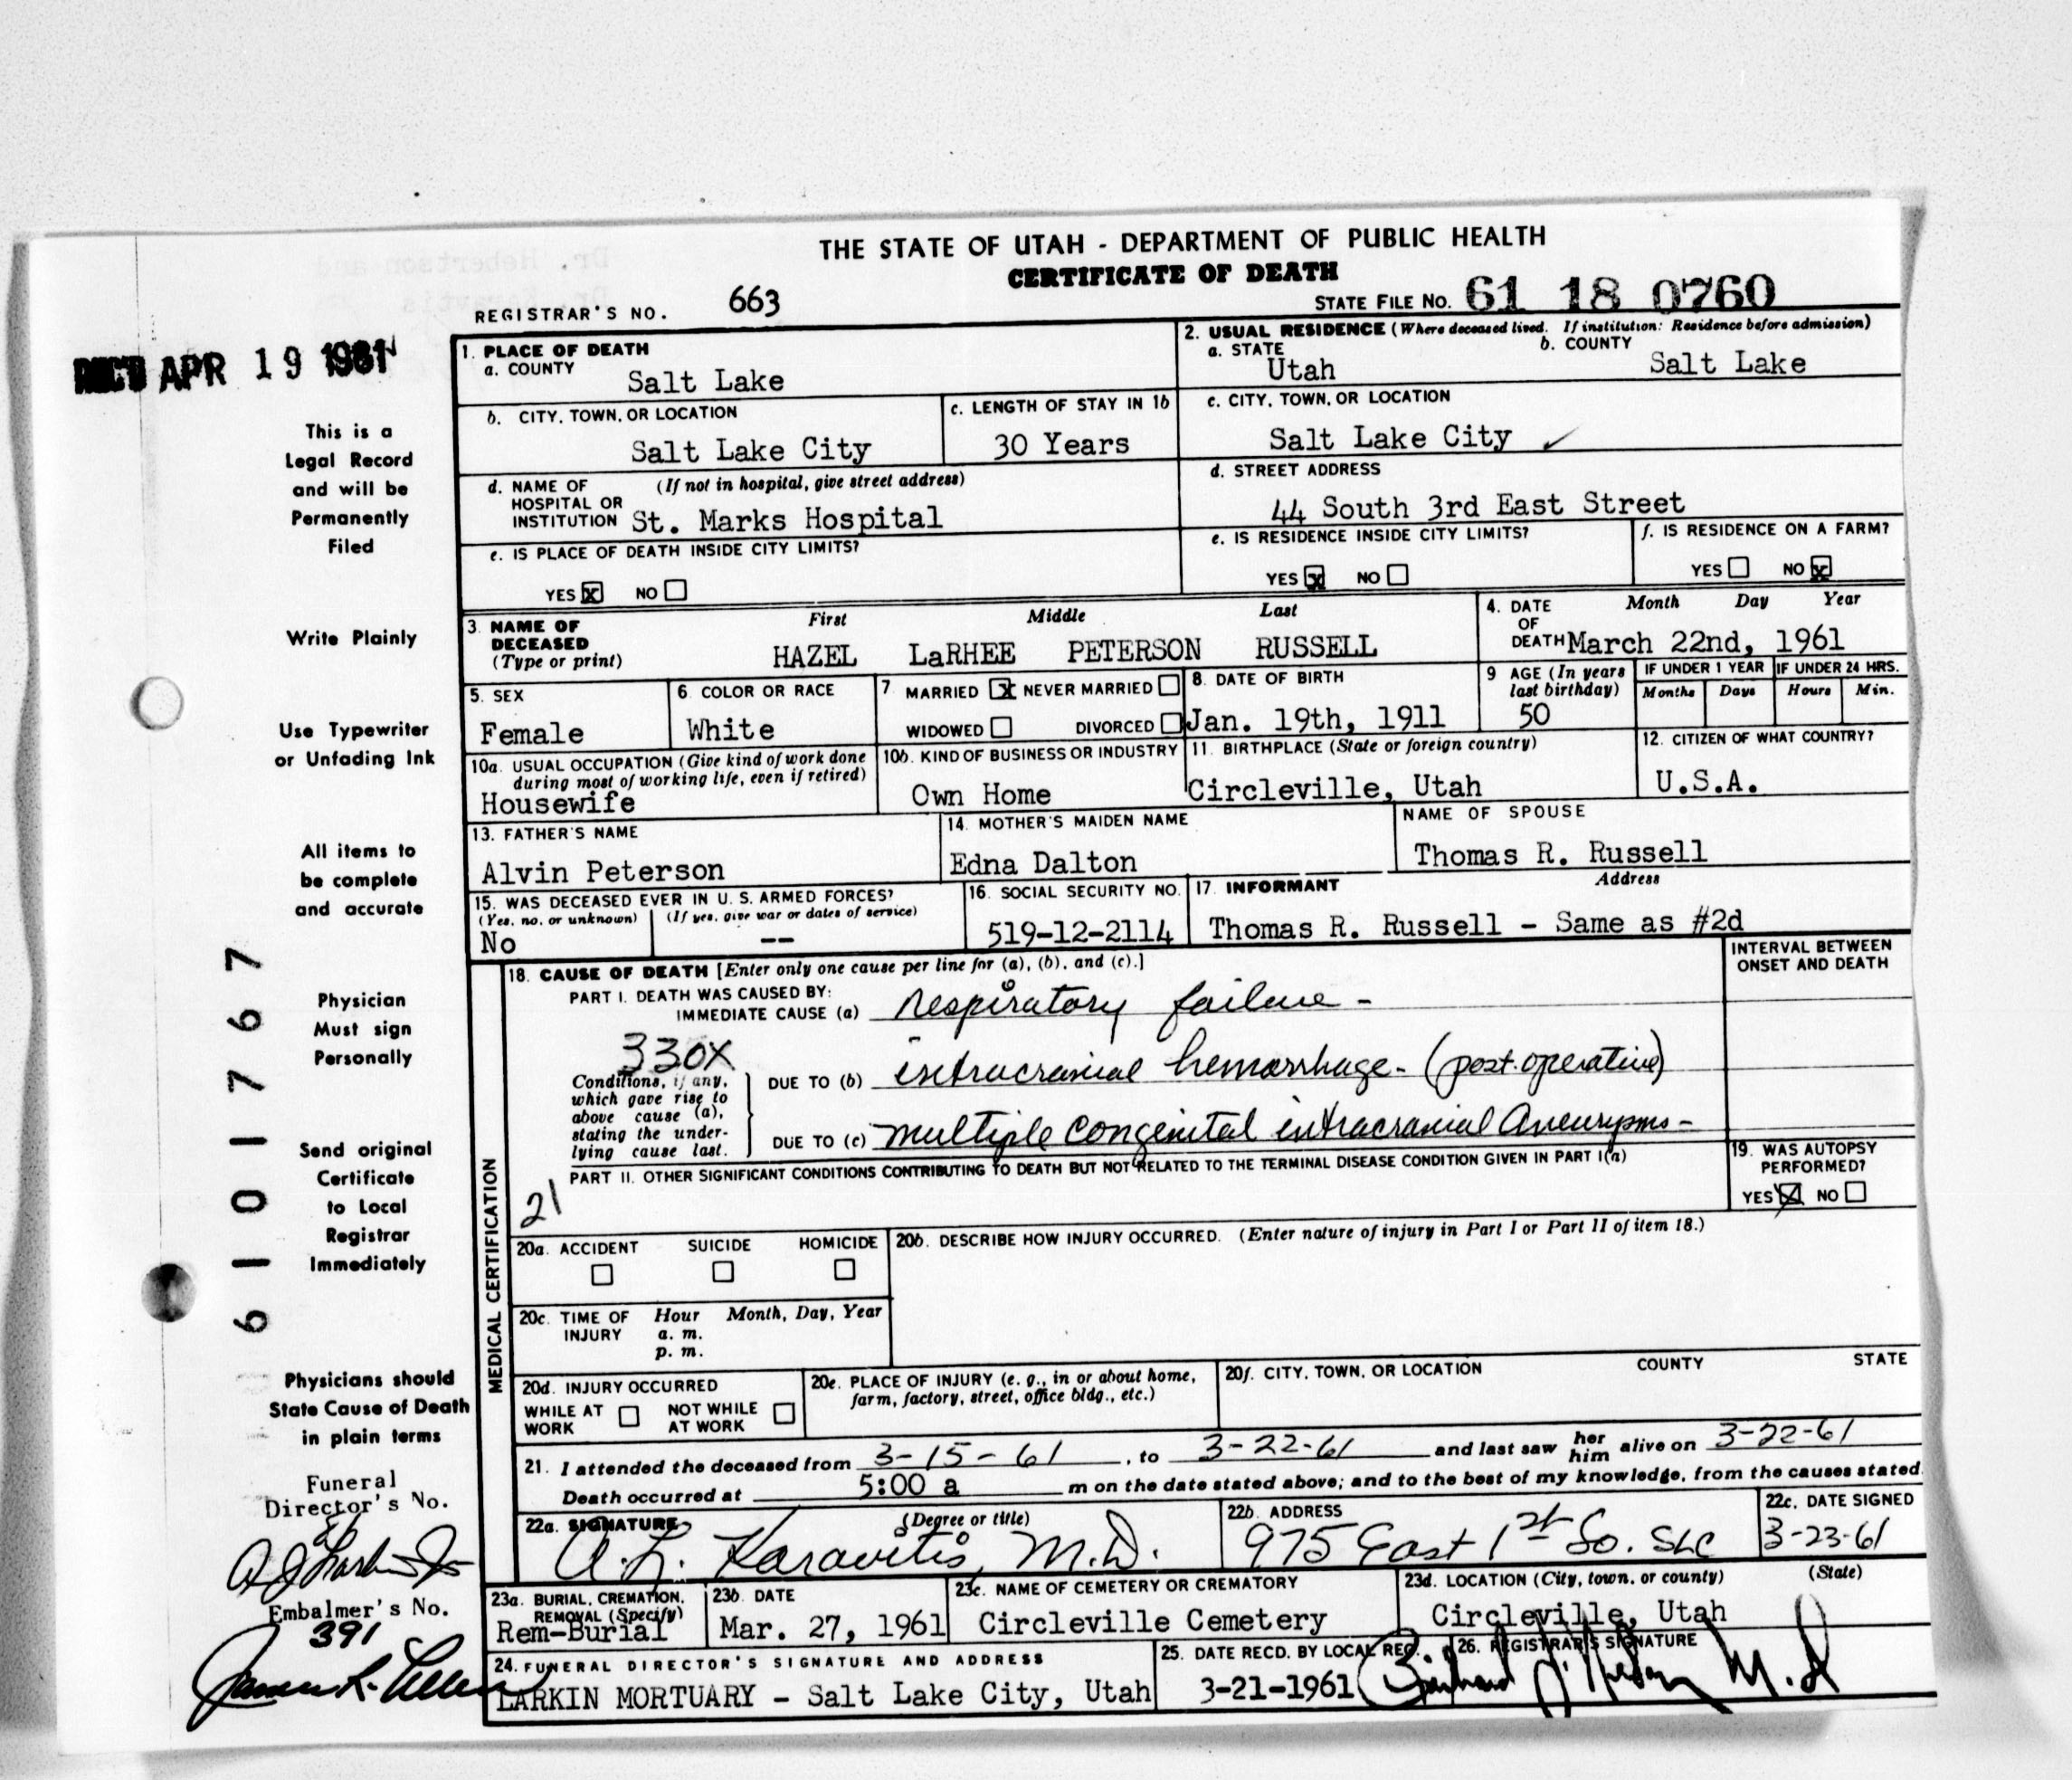 THE STATE OF UTAH - DEPARTMENT OF PUBLIC HEALTH
CERTIFICATE OF DEATH
REGISTRAR'S NO. 663 STATE FILE NO. 61 18 0760
REC'D APR 19 1961
This is a
Legal Record
and will be
Permanently
Filed
Write Plainly
Use Typewriter
or Unfading Ink
All items to
be complete
and accurate
Physician
Must sign
Personally
Send original
Certificate
to Local
Registrar
Immediately
Physicians should
State Cause of Death
in plain terms
Funeral
Director's No.
Embalmer's No.
391
6101767
1. PLACE OF DEATH
a. COUNTY Salt Lake
2. USUAL RESIDENCE (Where deceased lived. If institution: Residence before admission)
a. STATE Utah b. COUNTY Salt Lake
b. CITY, TOWN, OR LOCATION Salt Lake City
c. LENGTH OF STAY IN 1b 30 Years
c. CITY, TOWN, OR LOCATION Salt Lake City
d. NAME OF HOSPITAL OR INSTITUTION (If not in hospital, give street address) St. Marks Hospital
d. STREET ADDRESS 44 South 3rd East Street
e. IS PLACE OF DEATH INSIDE CITY LIMITS?
YES X NO
e. IS RESIDENCE INSIDE CITY LIMITS?
YES X NO
f. IS RESIDENCE ON A FARM?
YES NO X
3. NAME OF DECEASED (Type or print) First Middle Last
HAZEL LaRHEE PETERSON RUSSELL
4. DATE OF DEATH Month Day Year
March 22nd, 1961
5. SEX Female
6. COLOR OR RACE White
7. MARRIED X NEVER MARRIED
WIDOWED DIVORCED
8. DATE OF BIRTH Jan. 19th, 1911
9 AGE (In years last birthday) 50
IF UNDER 1 YEAR Months Days
IF UNDER 24 HRS. Hours Min.
10a. USUAL OCCUPATION (Give kind of work done during most of working life, even if retired)
Housewife
10b. KIND OF BUSINESS OR INDUSTRY Own Home
11. BIRTHPLACE (State or foreign country) Circleville, Utah
12. CITIZEN OF WHAT COUNTRY? U.S.A.
13. FATHER'S NAME Alvin Peterson
14. MOTHER'S MAIDEN NAME Edna Dalton
NAME OF SPOUSE Thomas R. Russell
15. WAS DECEASED EVER IN U. S. ARMED FORCES?
(Yes, no, or unknown) (If yes, give war or dates of service)
No --
16. SOCIAL SECURITY NO. 519-12-2114
17. INFORMANT Address
Thomas R. Russell - Same as #2d
MEDICAL CERTIFICATION
18. CAUSE OF DEATH [Enter only one cause per line for (a), (b), and (c).]
INTERVAL BETWEEN ONSET AND DEATH
PART I. DEATH WAS CAUSED BY:
IMMEDIATE CAUSE (a) respiratory failure -
330X
Conditions, if any, which gave rise to above cause (a), stating the underlying cause last.
DUE TO (b) intracranial hemorrhage - (post-operative)
DUE TO (c) multiple congenital intracranial Aneurysms -
PART II. OTHER SIGNIFICANT CONDITIONS CONTRIBUTING TO DEATH BUT NOT RELATED TO THE TERMINAL DISEASE CONDITION GIVEN IN PART I(a)
21
19. WAS AUTOPSY PERFORMED?
YES X NO
20a. ACCIDENT SUICIDE HOMICIDE
20b. DESCRIBE HOW INJURY OCCURRED. (Enter nature of injury in Part I or Part II of item 18.)
20c. TIME OF INJURY Hour Month, Day, Year
a. m.
p. m.
20d. INJURY OCCURRED
WHILE AT WORK NOT WHILE AT WORK
20e. PLACE OF INJURY (e. g., in or about home, farm, factory, street, office bldg., etc.)
20f. CITY, TOWN, OR LOCATION COUNTY STATE
21. I attended the deceased from 3-15-61, to 3-22-61 and last saw her him alive on 3-22-61
Death occurred at 5:00 a m on the date stated above; and to the best of my knowledge, from the causes stated.
22a. SIGNATURE (Degree or title) A. L. Karavitis, M.D.
22b. ADDRESS 975 East 1st So. SLC
22c. DATE SIGNED 3-23-61
23a. BURIAL, CREMATION, REMOVAL (Specify) Rem-Burial
23b. DATE Mar. 27, 1961
23c. NAME OF CEMETERY OR CREMATORY Circleville Cemetery
23d. LOCATION (City, town, or county) (State) Circleville, Utah
24. FUNERAL DIRECTOR'S SIGNATURE AND ADDRESS
LARKIN MORTUARY - Salt Lake City, Utah
25. DATE RECD. BY LOCAL REG. 3-21-1961
26. REGISTRAR'S SIGNATURE
M.D